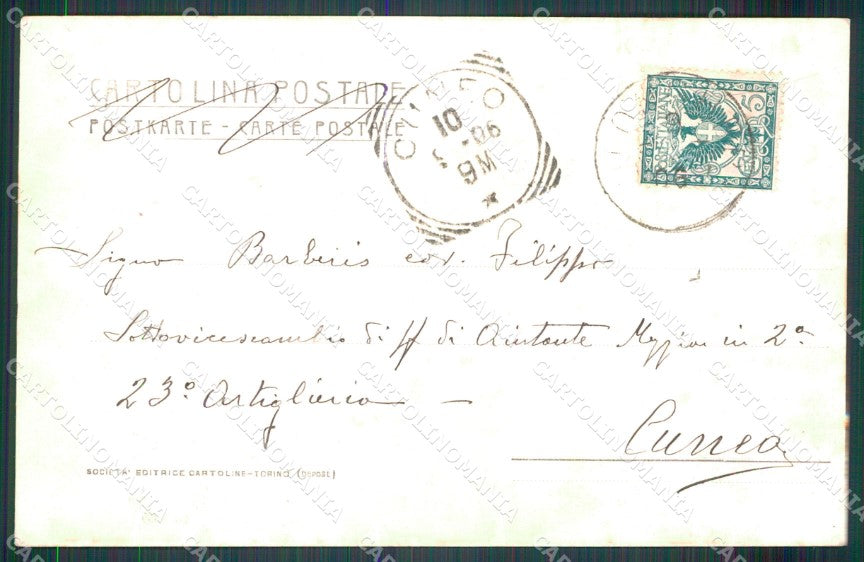 CARTOLINA POSTALE
POSTKARTE - CARTE POSTALE
CUNEO
10
06
9M
POSTE ITALIANE
5
Signor Barberis cav. Filippo
Sottovicescambio di ff di Aiutante Magg in 2a
23° Artiglieria -
Cuneo
SOCIETA' EDITRICE CARTOLINE-TORINO (DEPOSE)
CARTOLINOMANIA